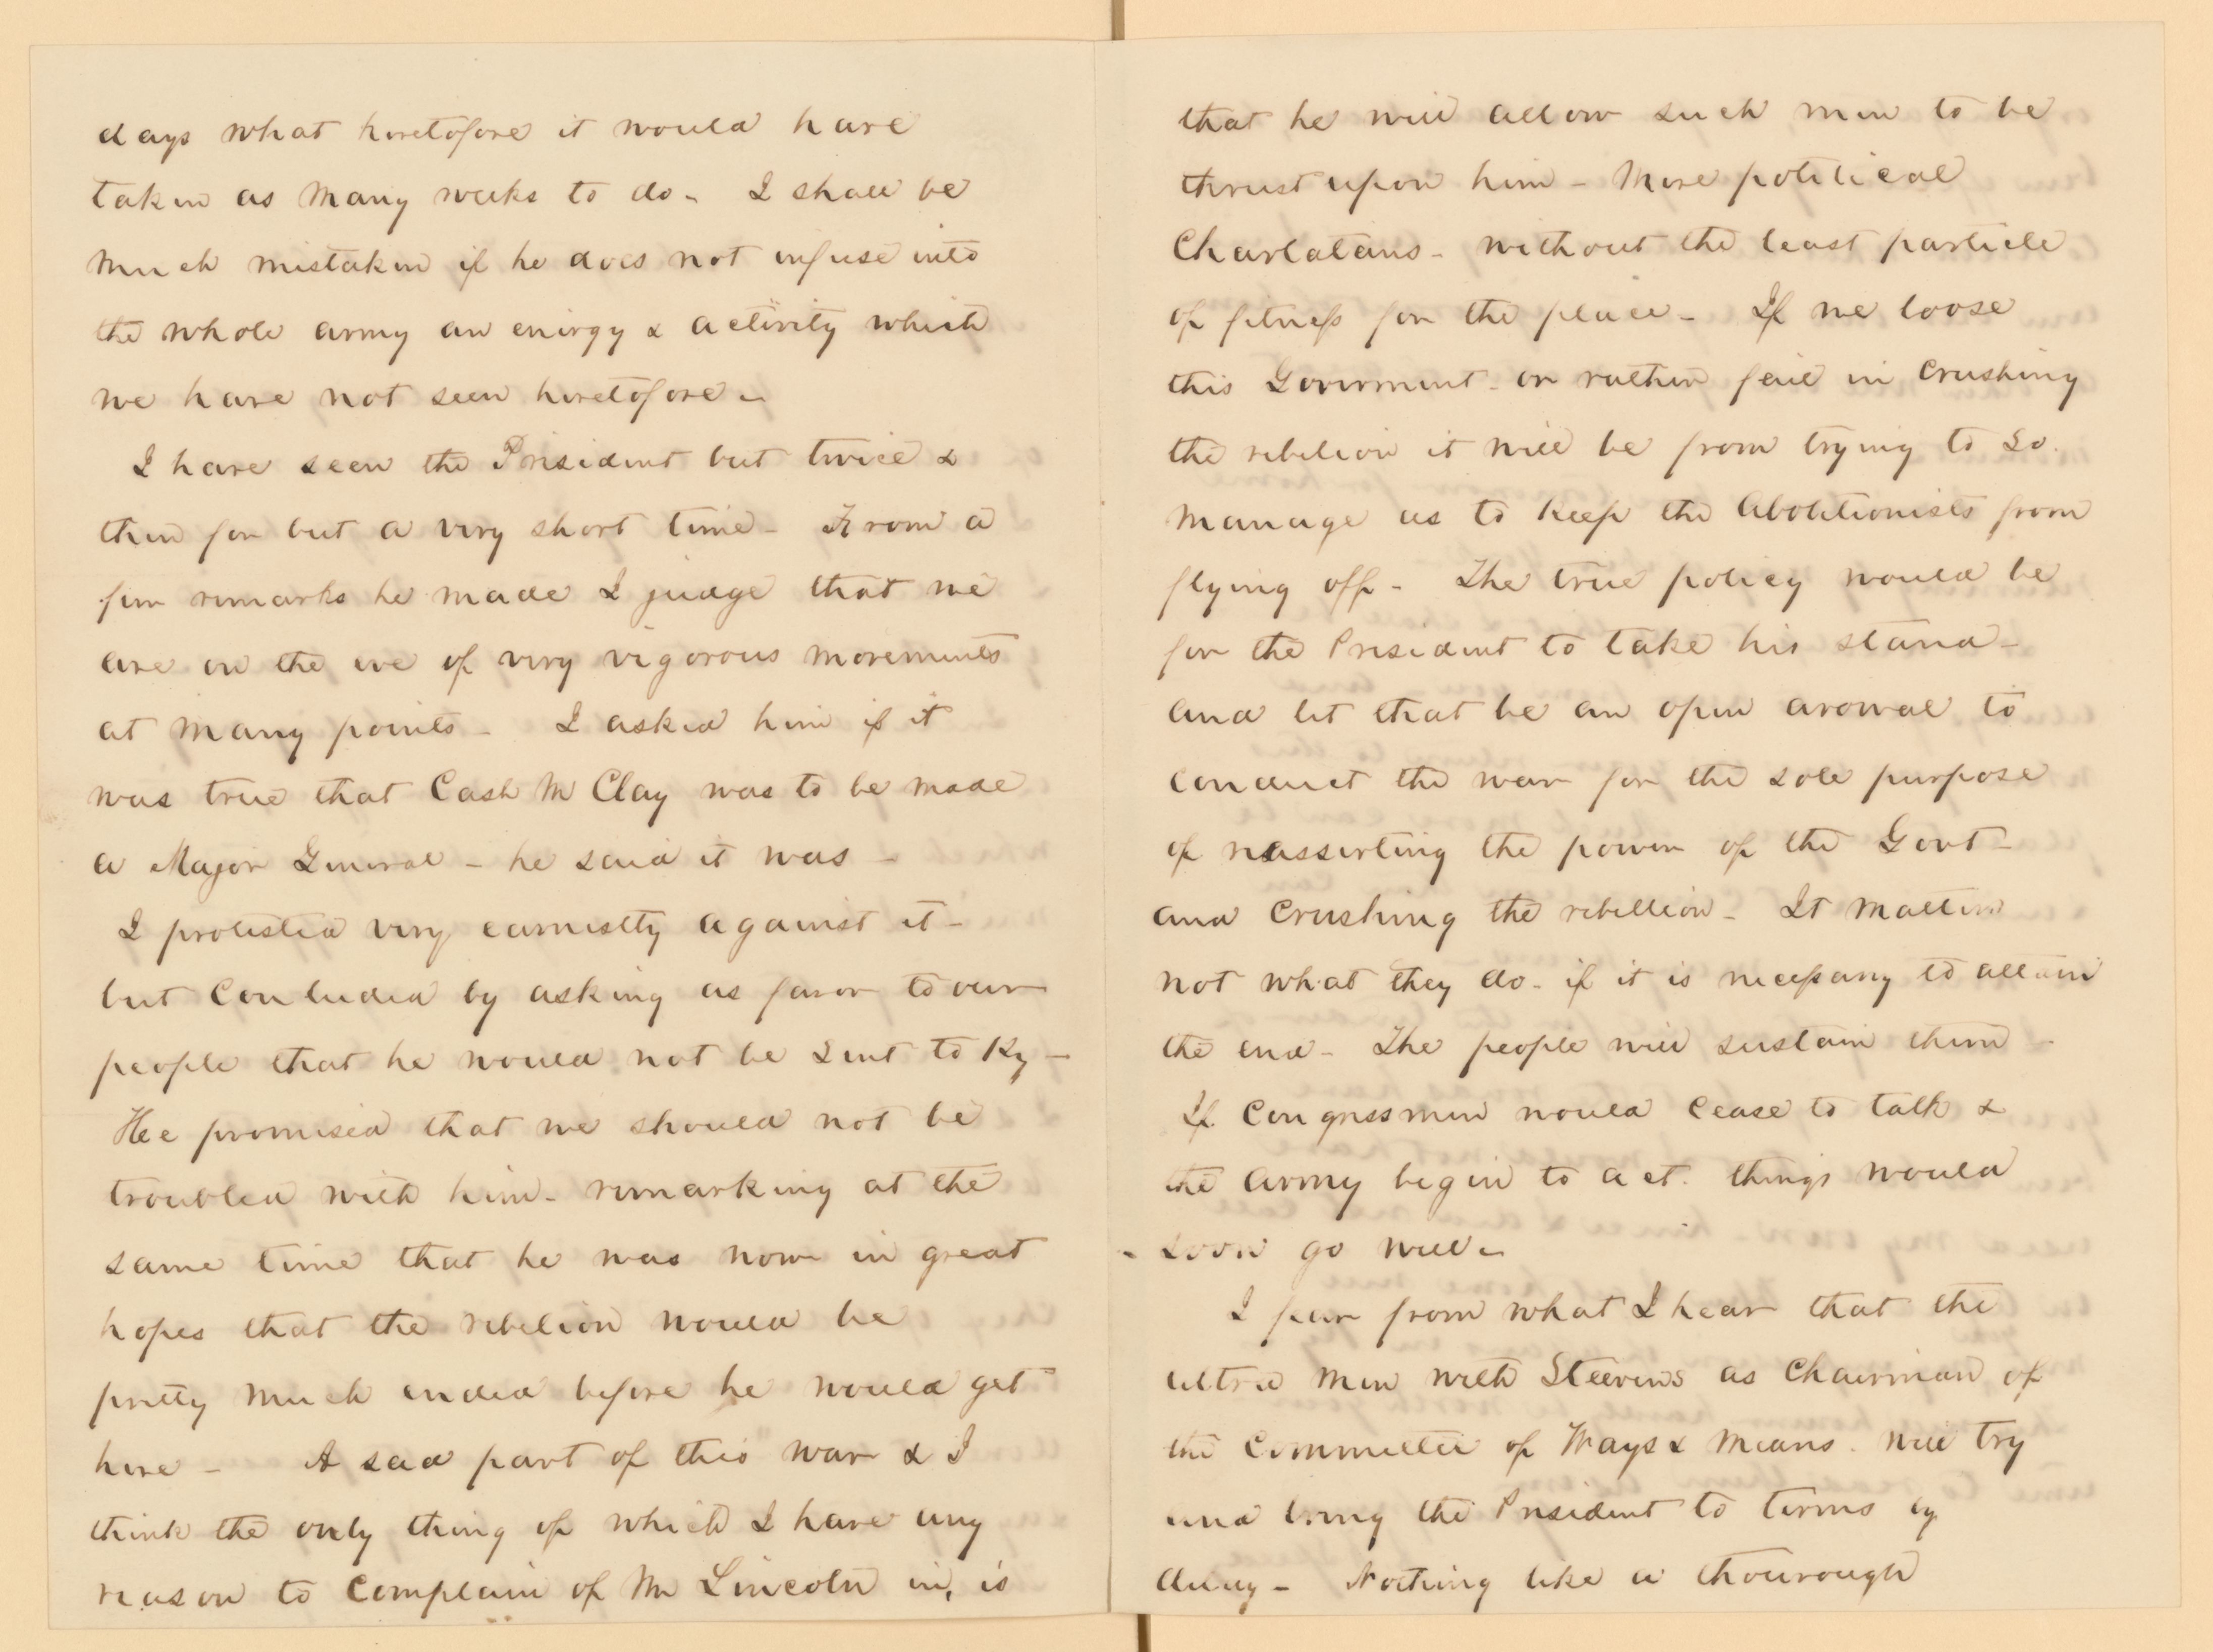 days what heretofore it would have
taken as many weeks to do - I shall be
much mistaken if he does not infuse into
the whole army an energy & activity which
we have not seen heretofore -
I have seen the President but twice &
then for but a very short time - From a
few remarks he made I judge that we
are on the eve of very vigorous movements
at many points - I asked him if it
was true that Cash M Clay was to be made
a Major General - he said it was -
I protested very earnestly against it -
but concluded by asking as favor to our
people that he would not be sent to Ky -
Hee promised that we should not be
troubled with him - remarking at the
same time that he was now in great
hopes that the rebelion would be
pretty much ended before he would get
here - A sad part of this war & I
think the only thing of which I have any
reason to complain of Mr Lincoln in, is
that he will allow such men to be
thrust upon him - Mere political
Charlatans - without the least particle
of fitness for the place - If we loose
this Goverment - or rather fail in crushing
the rebelion it will be from trying to so
manage as to keep the abolitionists from
flying off - The true policy would be
for the President to take his stand -
and let that be an open avowal to
conduct the war for the sole purpose
of reasserting the power of the Govt -
and crushing the rebellion - It matters
not what they do - if it is necessary to attain
the end - The people will sustain them -
If Congressmen would cease to talk &
the army begin to act. things would
soon go well -
I fear from what I hear that the
ultra men with Steevens as Chairman of
the Committee of Ways & Means. will try
and bring the President to terms by
delay - Nothing like a thourough